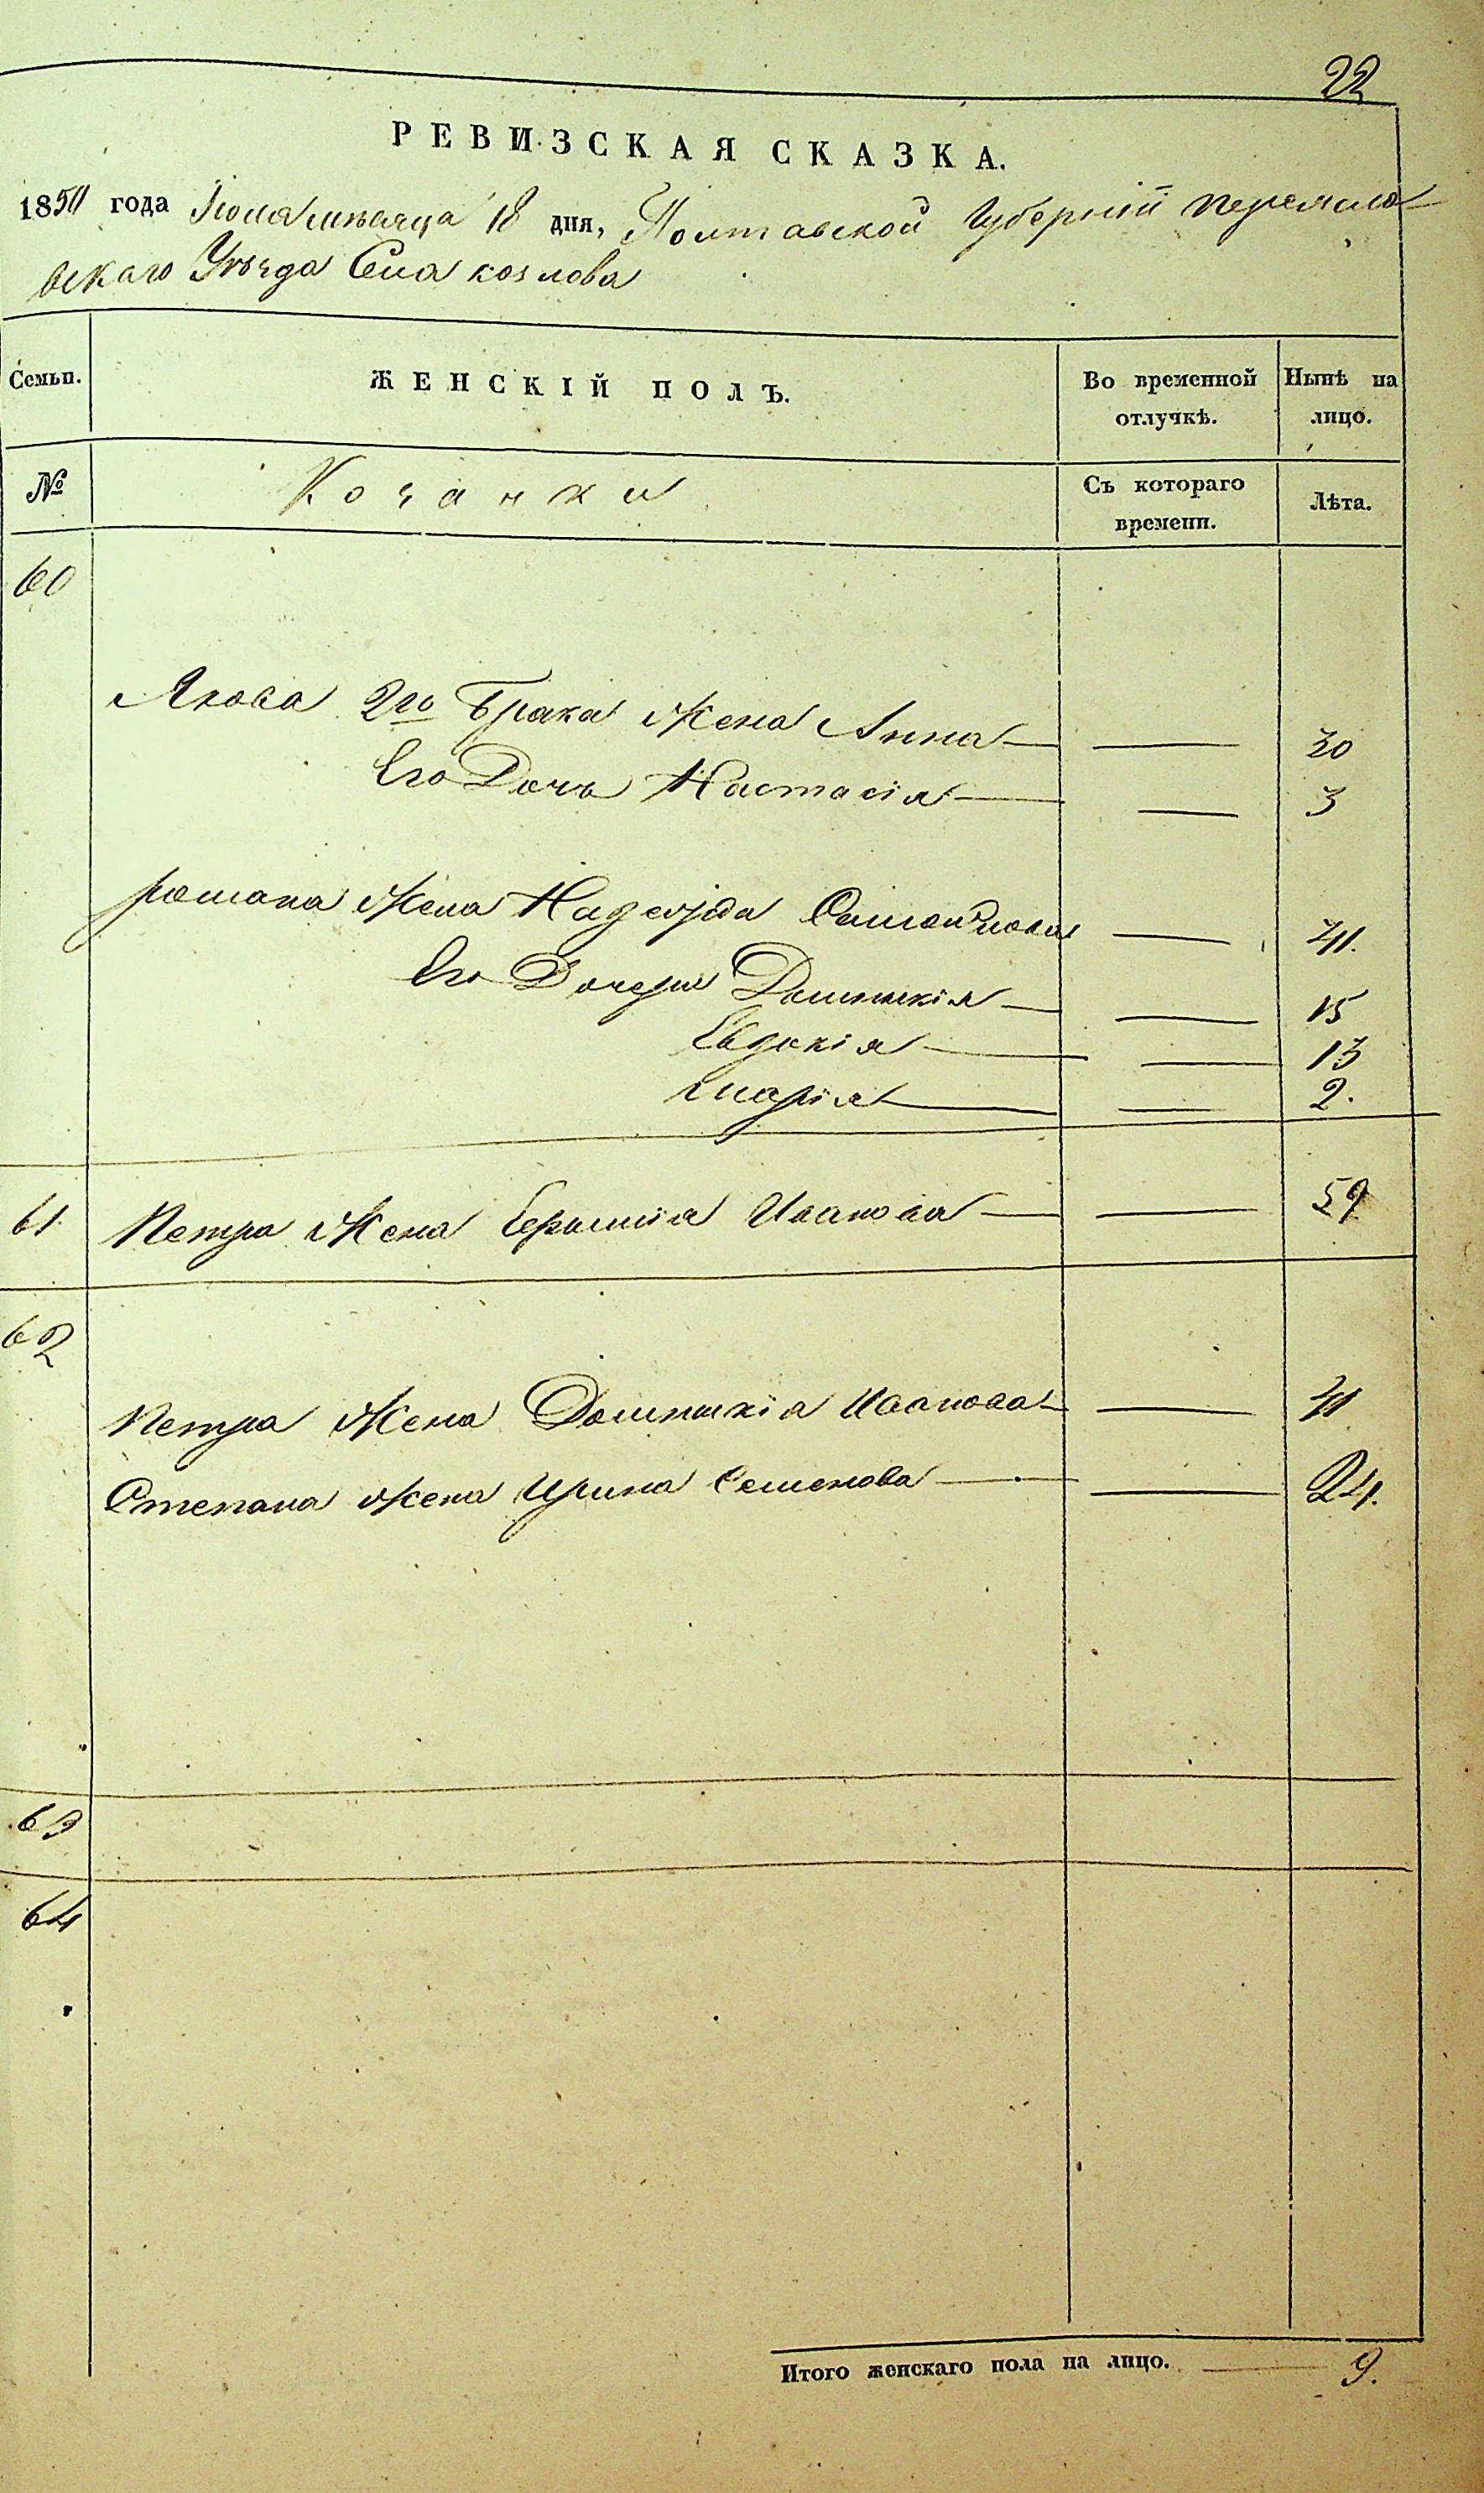 22
РЕВИЗСКАЯ СКАЗКА.
1850 года Июня мѣсяца 18 дня, Полтавской Губерніи Переясла-
вскаго Уѣзда Села козлова
Семьи. ЖЕНСКІЙ ПОЛЪ. Во временной отлучкѣ. Нынѣ на лицо.
№ Козачки Съ котораго времени. Лѣта.
60
Якова 2го Брака Жена Анна — — 30
Его Дочь Настасія — — 3
романа Жена Надежда — 41.
Его Дочери Домникія — — 15
Евдокія — — 13
марія — — 2.
61. Петра Жена Иванова — — 59
62
Петра Жена Домникія Иванова — — 41
Степана Жена Ирина Семенова — — 24.
63
64
Итого женскаго пола на лицо. — 9.